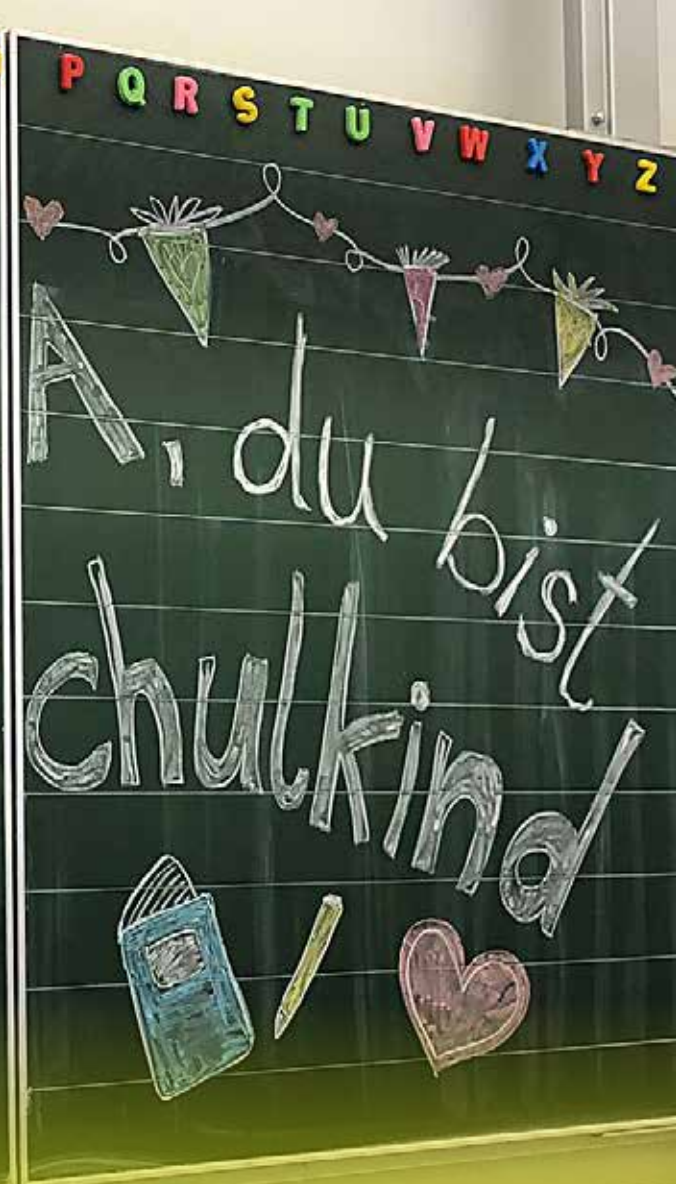 P Q R S T U V W X Y Z
A, du bist
chulkind